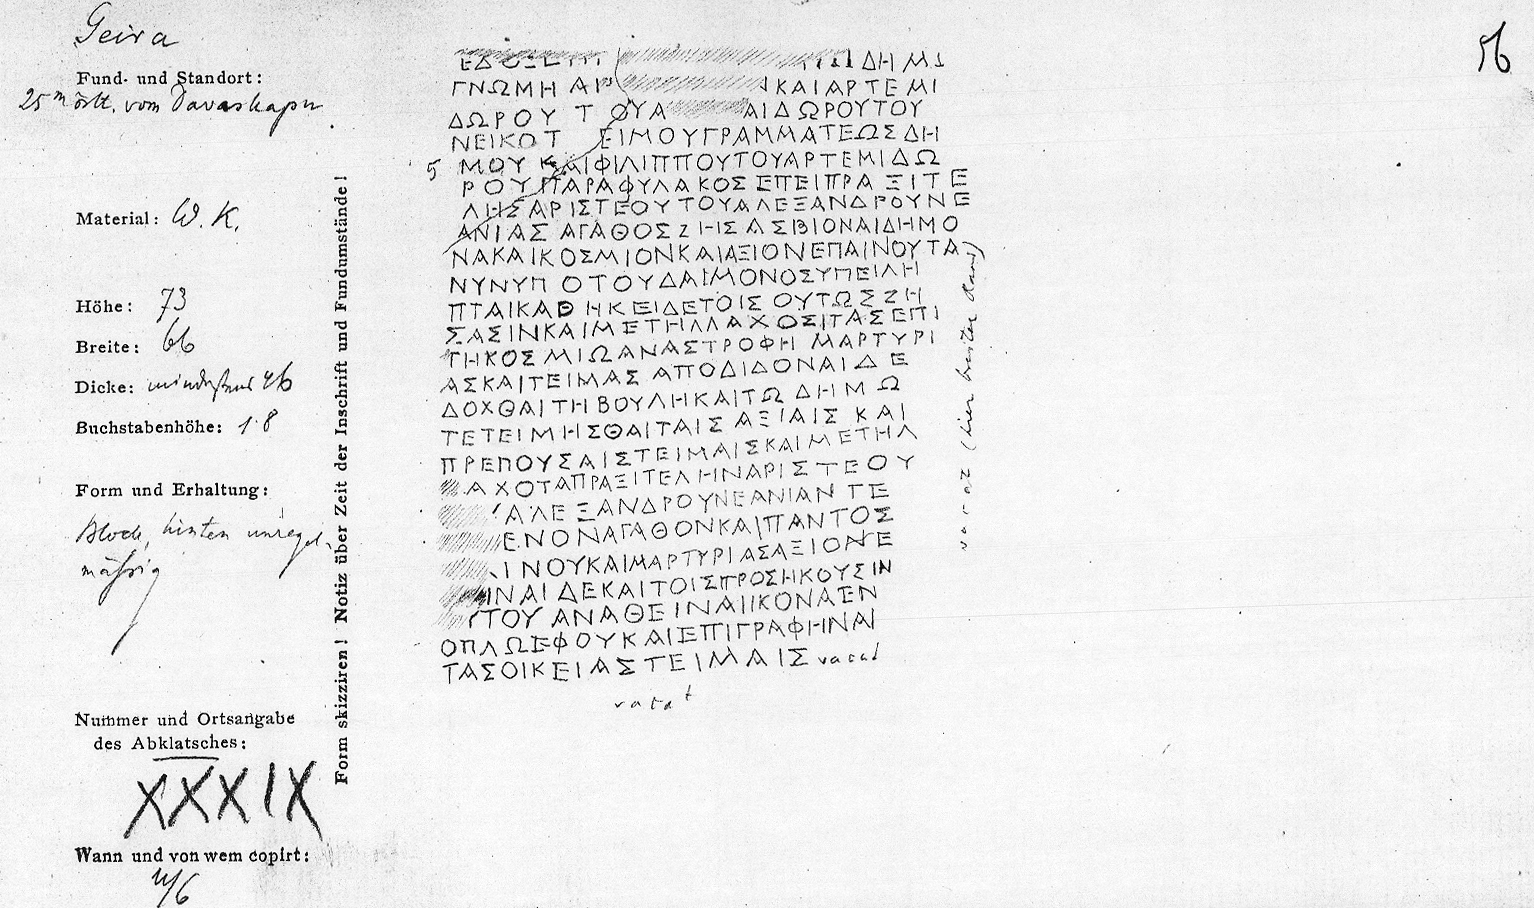 Geira
56
Fund- und Standort:
25 m östl. vom Davaskapu.
Material: W. K.
Höhe: 73
Breite: 66
Dicke: mindestens 46
Buchstabenhöhe: 1·8
Form und Erhaltung:
Block, hinten unregel-
mäßig
Form skizziren! Notiz über Zeit der Inschrift und Fundumstände!
Nummer und Ortsangabe
des Abklatsches:
XXXIX
Wann und von wem copirt:
ΕΔΟΞΕ ΔΗΜΩ
ΓΝΩΜΗ ΑΡ ΚΑΙΑΡΤΕΜΙ
ΔΩΡΟΥ Τ ΟΥΑ ΑΙΔΩΡΟΥΤΟΥ
ΝΕΙΚΟΤ ΕΙΜΟΥΓΡΑΜΜΑΤΕΩΣΔΗ
5 ΜΟΥ ΚΑΙΦΙΛΙΠΠΟΥΤΟΥΑΡΤΕΜΙΔΩ
ΡΟΥΠΑΡΑΦΥΛΑΚΟΣΕΠΕΙΠΡΑΞΙΤΕ
ΛΗΣΑΡΙΣΤΕΟΥΤΟΥΑΛΕΞΑΝΔΡΟΥΝΕ
ΑΝΙΑΣ ΑΓΑΘΟΣΖΗΣΑΣΒΙΟΝΑΙΔΗΜΟ
ΝΑΚΑΙΚΟΣΜΙΟΝΚΑΙΑΞΙΟΝΕΠΑΙΝΟΥΤΑ
ΝΥΝΥΠ ΟΤΟΥΔΑΙΜΟΝΟΣΥΠΕΙΛΗ
ΠΤΑΙΚΑΘΗΚΕΙΔΕΤΟΙΣ ΟΥΤΩΣΖΗ
ΣΑΣΙΝΚΑΙΜΕΤΗΛΛΑΧΟΣΙΤΑΣΕΠΙ
ΤΗΚΟΣΜΙΩΑΝΑΣΤΡΟΦΗ ΜΑΡΤΥΡΙ
ΑΣΚΑΙΤΕΙΜΑΣ ΑΠΟΔΙΔΟΝΑΙΔΕ
ΔΟΧΘΑΙΤΗΒΟΥΛΗΚΑΙΤΩΔΗΜΩ
ΤΕΤΕΙΜΗΣΘΑΙΤΑΙΣΑΞΙΑΙΣ ΚΑΙ
ΠΡΕΠΟΥΣΑΙΣΤΕΙΜΑΙΣΚΑΙΜΕΤΗΛ
ΑΧΟΤΑΠΡΑΞΙΤΕΛΗΝΑΡΙΣΤΕΟΥ
ΑΛΕΞΑΝΔΡΟΥΝΕΑΝΙΑΝΓΕ
ΕΝΟΝΑΓΑΘΟΝΚΑΙΠΑΝΤΟΣ
ΙΝΟΥΚΑΙΜΑΡΤΥΡΙΑΣΑΞΙΟΝΕ
ΙΝΑΙΔΕΚΑΙΤΟΙΣΠΡΟΣΗΚΟΥΣΙΝ
ΤΟΥ ΑΝΑΘΕΙΝΑΙΙΚΟΝΑΕΝ
ΟΠΛΩΕΦΟΥΚΑΙΕΠΙΓΡΑΦΗΝΑΙ
ΤΑΣΟΙΚΕΙΑΣΤΕΙΜΑΙΣ vacat
vacat
vacat (hier breiter Rand)